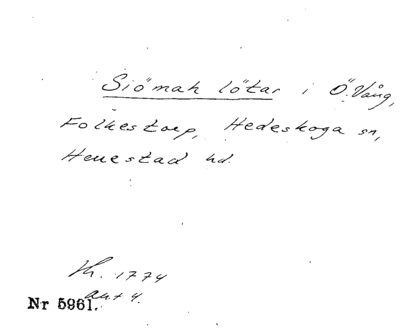 Siömah lötar i Ö. Vång,
Folkestorp, Hedeskoga sn,
Herrestad hd.
Kh. 1774
ant 4.
Nr 5961.